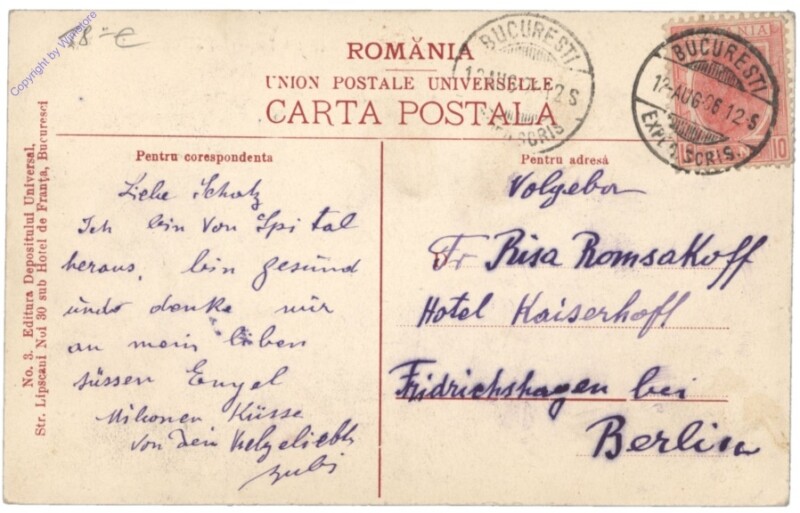 Copyright by Wanstore
8 -€
ROMÂNIA
UNION POSTALE UNIVERSELLE
CARTA POSTALĂ
BUCURESTI
12 AUG 12-S
BUCURESTI
12-AUG-06 12-S
EXPED. SCRIS.
10
No. 3. Editura Depositului Universal,
Str. Lipscani Noi 30 sub Hotel de Franţa, Bucuresci
Pentru corespondenta
Liebe Schatz
Ich bin von Spital
heraus, bin gesund
und denke nur
an mein lieben
süssen Engel
Milionen Küsse
von dein
Pentru adresă
Volgebor
Fr Risa Romsakoff
Hotel Kaiserhoff
Fridrichshagen bei
Berlin